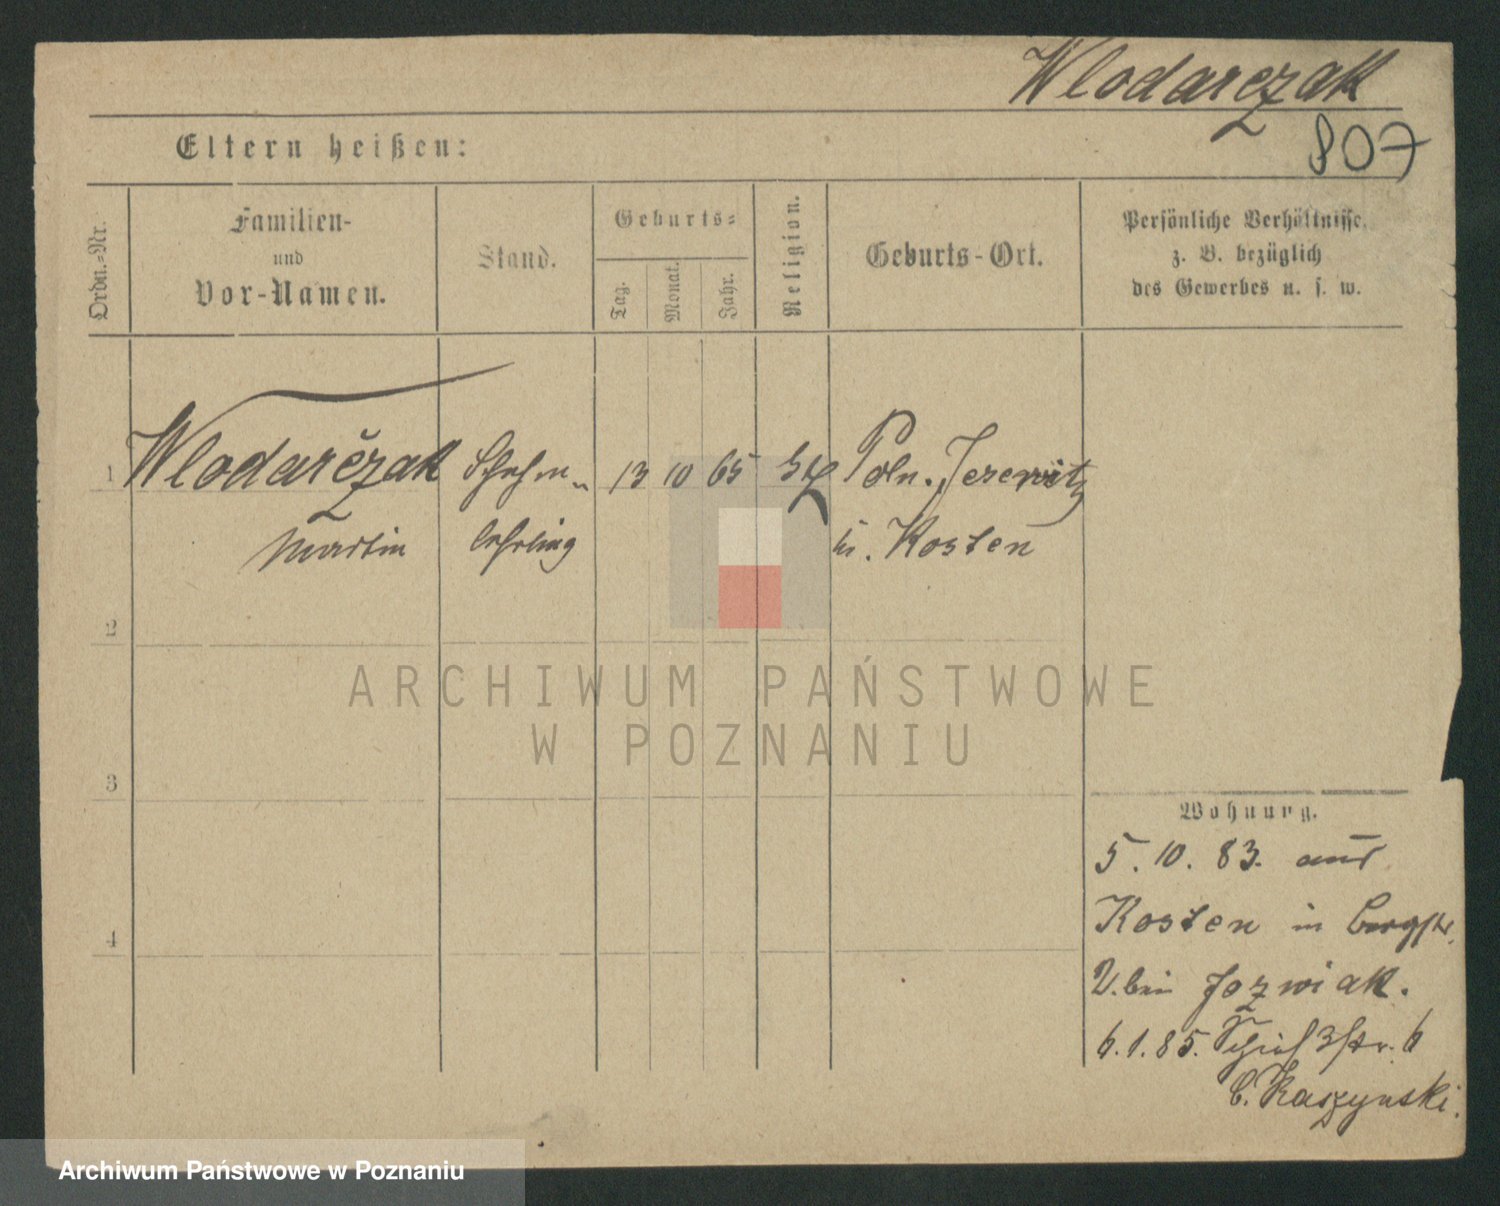 Wlodarczak
807
Eltern heißen:
Ordn.-Nr.
Familien-
und
Vor-Namen.
Stand.
Geburts-
Tag.
Monat.
Jahr.
Religion.
Geburts-Ort.
Persönliche Verhältnisse,
z. B. bezüglich
des Gewerbes u. s. w.
1 Wlodarčzak 13 10 65 Poln. Jerewitz
Martin lehrling Kr. Kosten
2
3
4
ARCHIWUM PAŃSTWOWE
W POZNANIU
Wohnung.
5. 10. 83. aus
Kosten in Bergstr.
2. bei Jozwiak.
6. 1. 85. 6
b. Kaszynski.
Archiwum Państwowe w Poznaniu